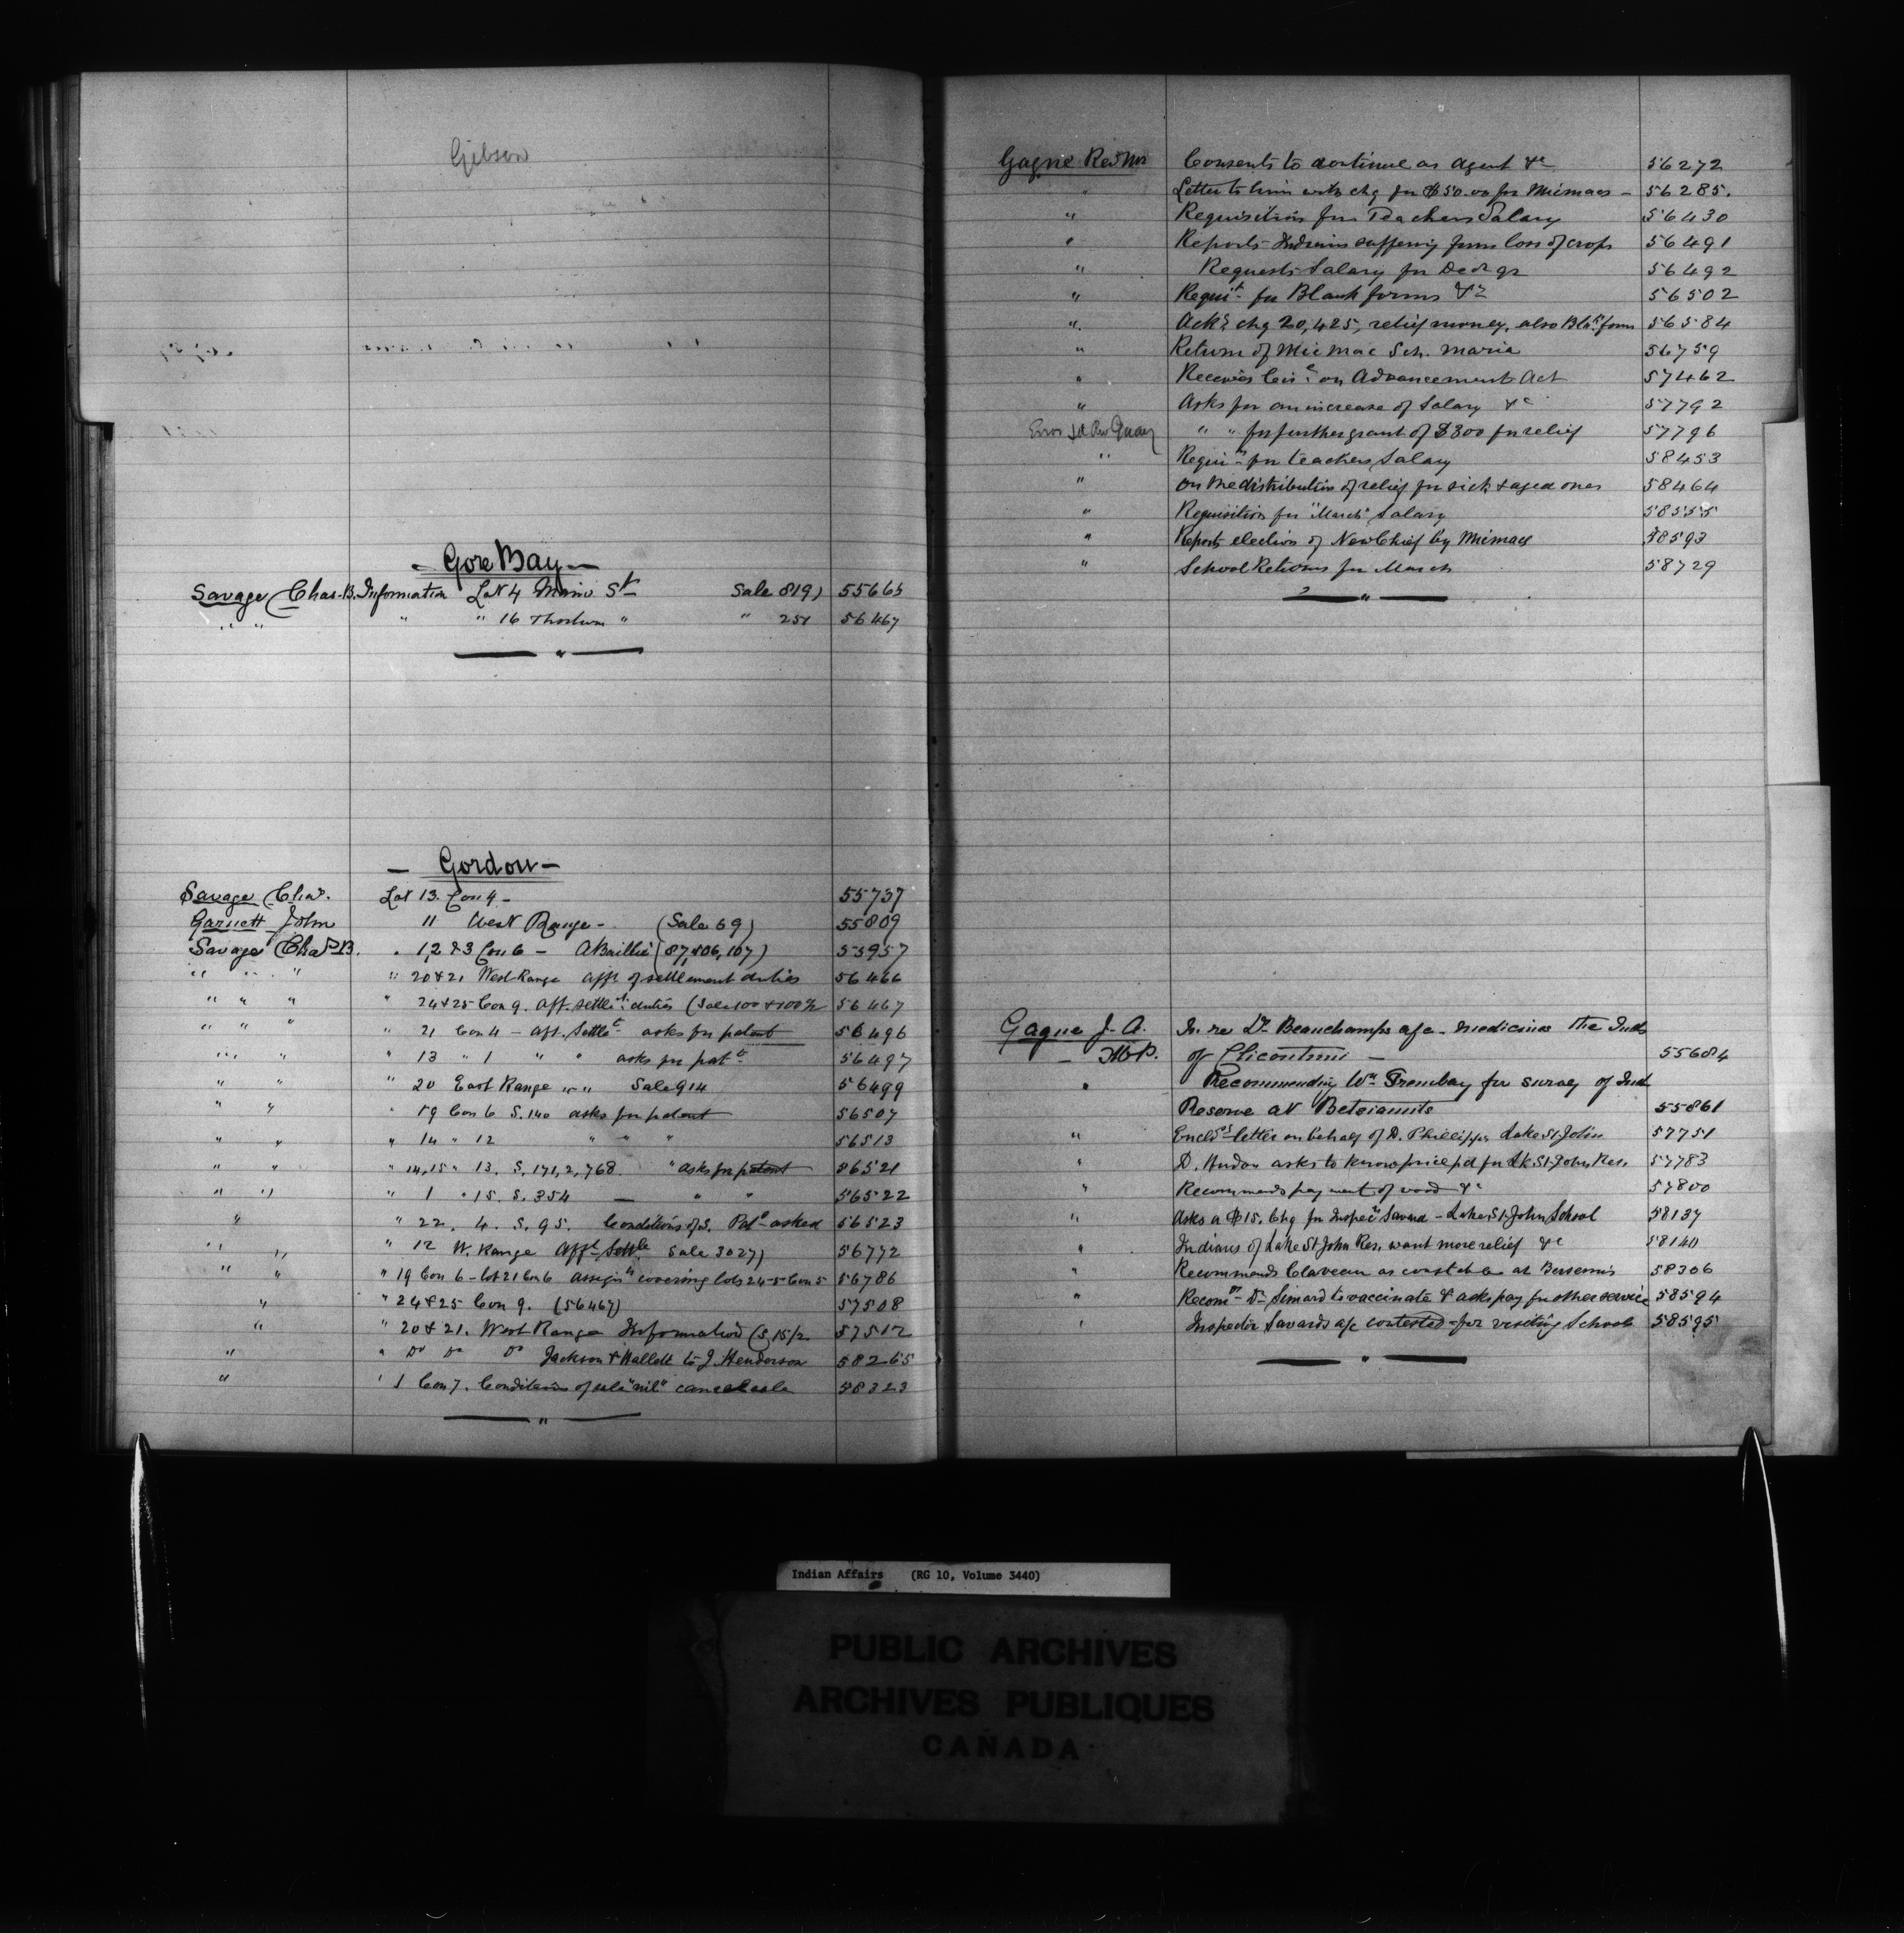 Gibson
- Gore Bay -
Savage Chas. B. Information Lot 4 Main St Sale 819) 55665
" " " " 16 Thorburn " " 251 56467
- Gordon -
Savage Chas. Lot 13. Con 4 - 55737
Garnett John 11 West Range - (Sale 69) 55809
Savage Chas B. " 1, 2 & 3 Con 6 - A Baillie (87, 106, 107) 55957
" " " " 20 & 21 West Range afft of settlement duties 56466
" " " " 24 & 25 Con 9. Aff. settlet duties (Sale 100 & 100½ 56467
" " " " 21 Con 4 - Aff. Settlet asks for patent 56496
" " " 13 " 1 " " asks for patt 56497
" " " 20 East Range " " Sale 914 56499
" " " 19 Con 6 S. 140 asks for patent 56507
" " " 14 " 12 " " " 56513
" " " 14, 15 " 13. S. 171, 2, 768. " asks for patent 56521
" " " 1 " 15. S. 354 — " " 56522
" " 22. 4. S. 95. Conditions of S. Pat asked 56523
" " " 12 W. Range Afft Settle Sale 3027) 56772
" " " 19 Con 6 - lot 21 Con 6 assignt covering lots 24-5 Con 5 56786
" " 24 & 25 Con 9. (56467) 57508
" " 20 & 21. West Range Information (S 15/2 57512
" " Do Do Do Jackson & Hallett to J. Henderson 58265
" " 1 Con 7. Conditions of sale "nil" cancelable 58323
Gagne Rev Mr Consents to continue as agent &c 56272
" Letter to him with chq for $50.00 for Micmacs - 56285.
" Requisition for Teachers Salary 56430
" Reports Indians suffering from loss of crops 56491
" Requests Salary for Dec qr 56492
" Requit for Blank forms &c 56502
" Acks chq 20,425, relief money, also Blk form 56584
" Return of Mic Mac Sch. Maria 56759
" Receives Circ on Advancement Act 57462
" Asks for an increase of Salary &c 57792
Error Rev " " for further grant of $300 for relief 57796
" Requin for teachers Salary 58453
" On the distribution of relief for sick & aged ones 58464
" Requisition for "March" Salary 58555
" Reports election of New Chief by Micmacs 58593
" School Returns for March 58729
Gagne J. A. In re Dr Beauchamps a/c - medicines the Inds
- M.P. of Chicoutimi - 55684
" Recommending Wm Tremblay for survey of Ind
Reserve at Betsiamits 55861
" Encls letter on behalf of D. Phillippe Lake St John 57751
" D. Hudon asks to know price pd for Lk. St. John Res. 57783
" Recommends payment of wood &c 57800
" Asks a $15. Chq for Inspec Savard - Lake St. John School 58137
" Indians of Lake St John Res. want more relief &c 58140
" Recommends Claveau as constable at Bersemis 58306
" Recomm Dr Simard to vaccinate & asks pay for other service 58594
" Inspector Savards a/c contested for visiting Schools 58595
Indian Affairs (RG 10, Volume 3440)
PUBLIC ARCHIVES
ARCHIVES PUBLIQUES
CANADA